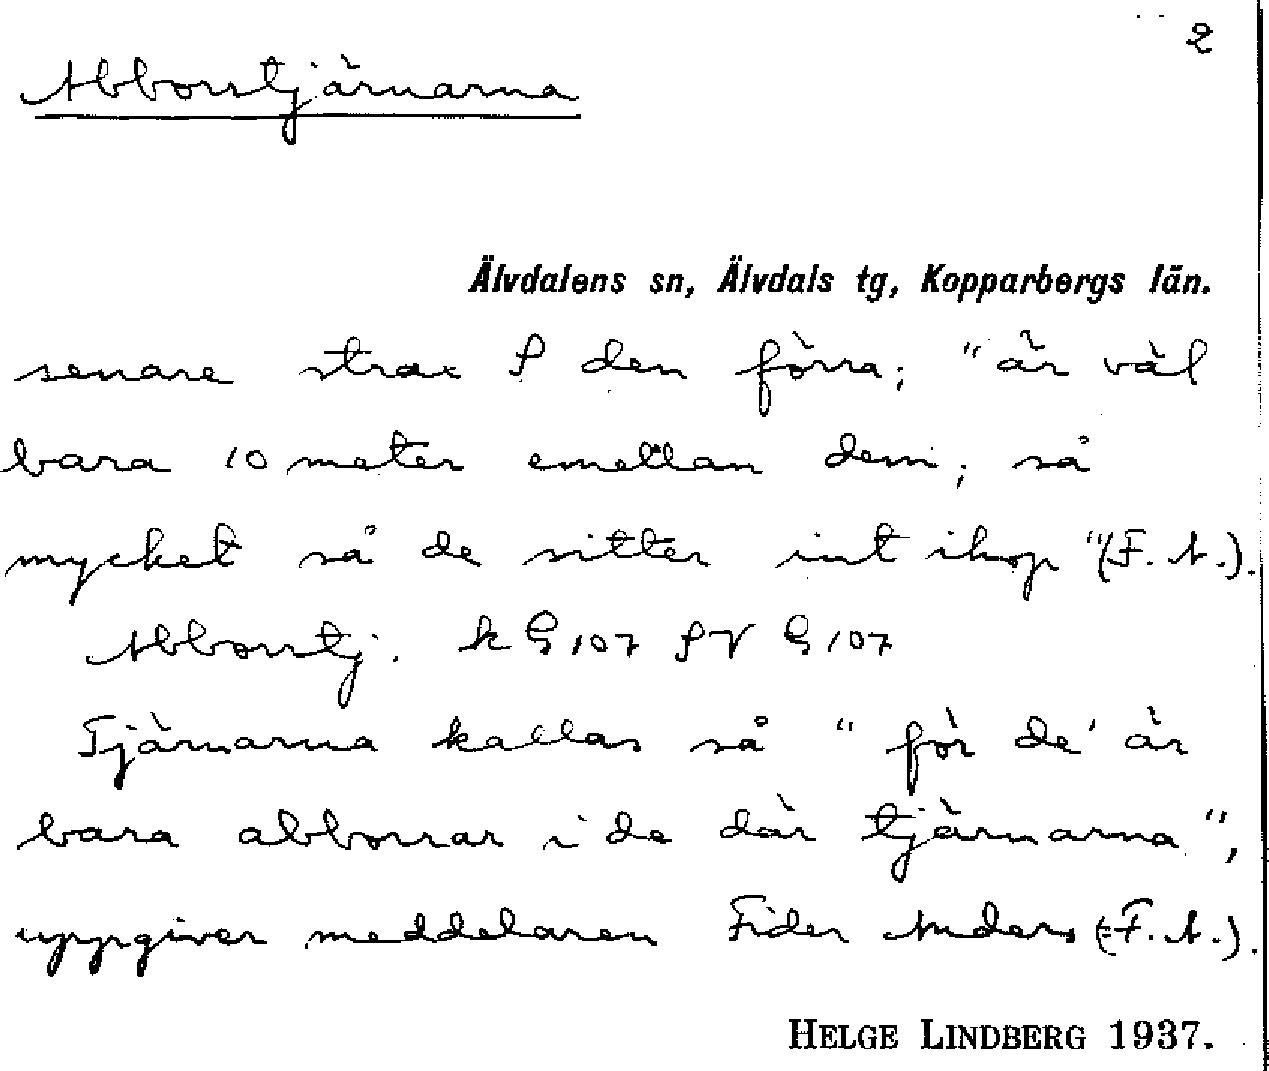 2
Abborrtjärnarna
Älvdalens sn, Älvdals tg, Kopparbergs län.
senare strax S den förra; "är väl
bara 10 meter emellan dem; så
mycket så de sitter int ihop "(F. A.).
Abborrtj. k G 107 SV G 107
Tjärnarna kallas så "för de' är
bara abborrar i de där tjärnarna",
uppgiver meddelaren Fider Anders (F. A.).
HELGE LINDBERG 1937.